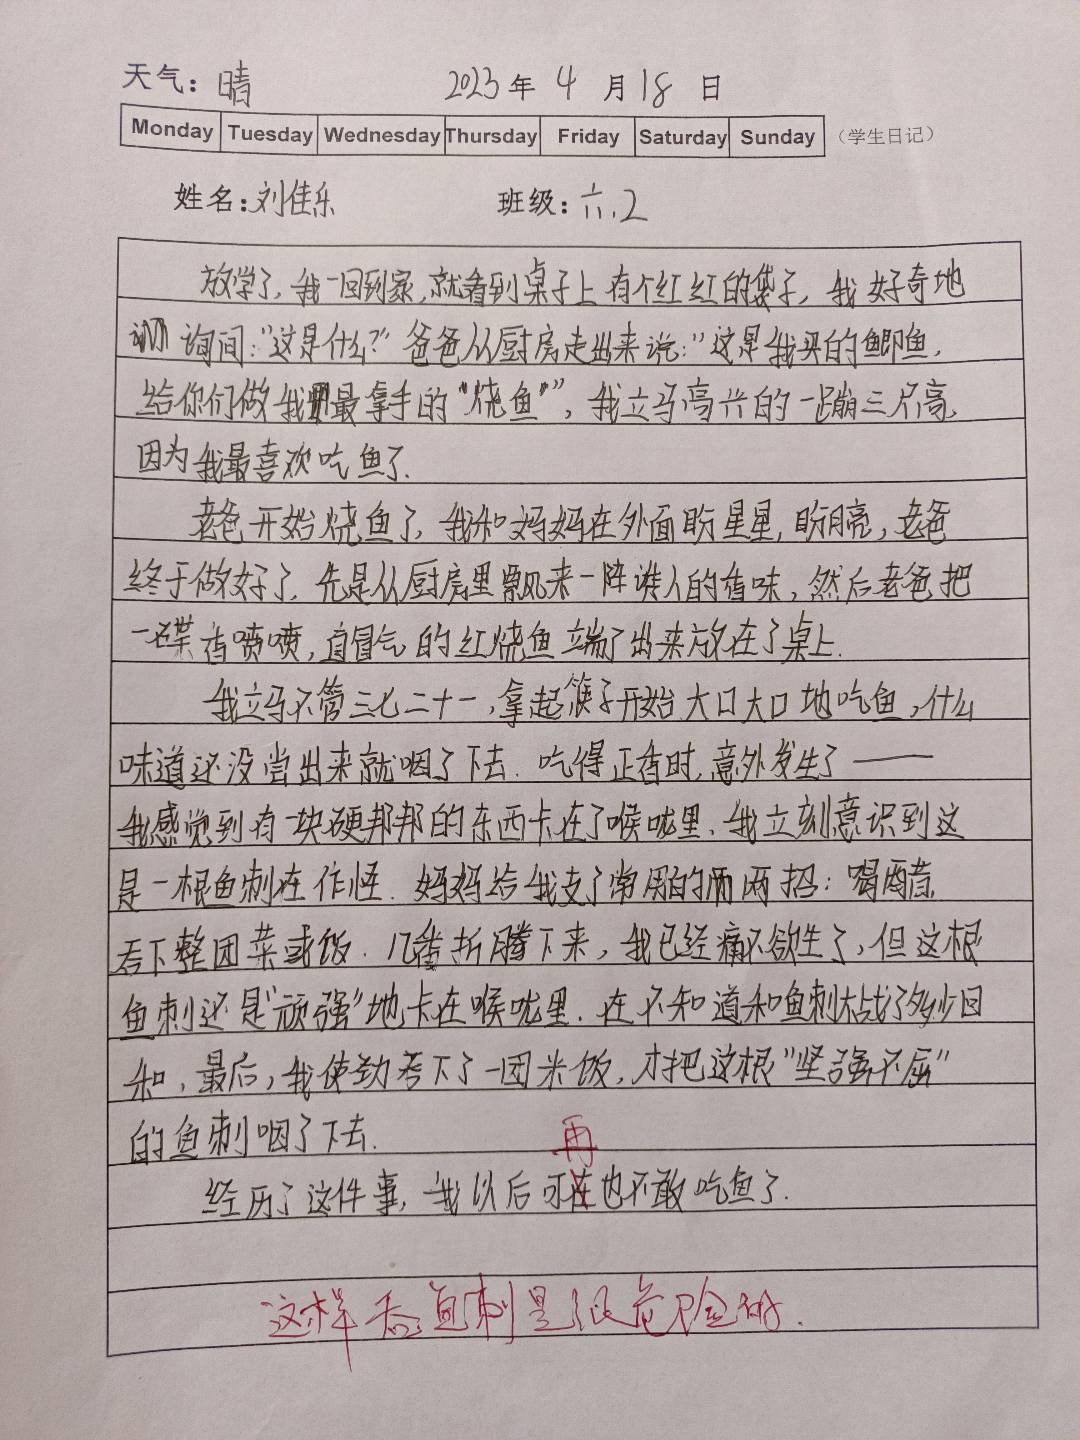 天气：晴 2023年4月18日
Monday Tuesday Wednesday Thursday Friday Saturday Sunday （学生日记）
姓名：刘佳乐 班级：六.2
放学了，我一回到家，就看到桌子上有个红红的袋子，我好奇地
询问："这是什么？"爸爸从厨房走出来说："这是我买的鲫鱼，
给你们做我最拿手的"烧鱼"，我立马高兴的一蹦三尺高，
因为我最喜欢吃鱼了.
老爸开始烧鱼了，我和妈妈在外面盼星星，盼月亮，老爸
终于做好了，先是从厨房里飘来一阵诱人的香味，然后老爸把
一碟香喷喷，直冒气的红烧鱼端了出来放在了桌上.
我立马不管三七二十一，拿起筷子开始大口大口地吃鱼，什么
味道还没尝出来就咽了下去.吃得正香时，意外发生了——
我感觉到有一块硬邦邦的东西卡在了喉咙里、我立刻意识到这
是一根鱼刺在作怪.妈妈给我支了常用的两招：喝醋，
吞下整团菜或饭.几番折腾下来，我已经痛不欲生了，但这根
鱼刺还是"顽强"地卡在喉咙里.在不知道和鱼刺大战了多少回
和，最后，我使劲吞下了一团米饭，才把这根"坚强不屈"
的鱼刺咽了下去.
再
经历了这件事，我以后可在也不敢吃鱼了.
这样吞鱼刺是很危险的.